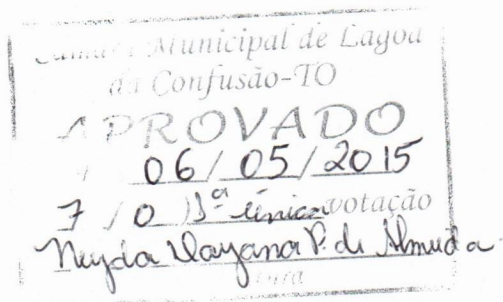 Municipal de Lagoa
da Confusão-TO
APROVADO
06/05/2015
7/0 votação
Neyda Dayana P. de Almeida